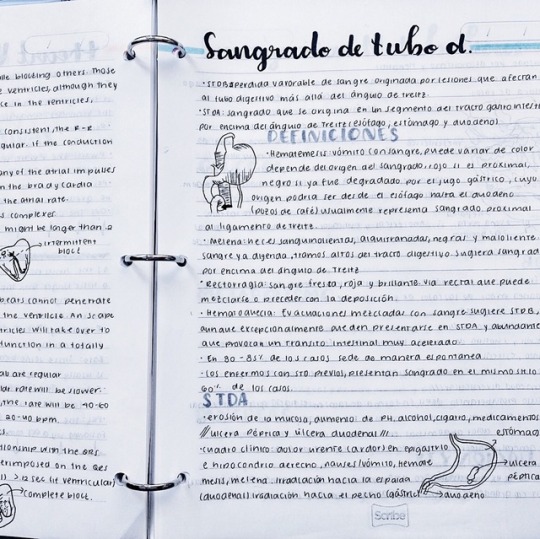 le blocking others. Those
e ventricles, although they
ce in the ventricles.
consistent, the R-R
gular. if the conduction
ny of the atrial impulses
n the bradycardia
the atrial rate.
s complexes
might be longer than a
intermittent
block
beats cannot penetrate
the ventricle. An scape
tricles will take over to
function in a totally
ab are regular
lar rate will be slower.
, the rate will be 40-60
20-40 bpm.
tionship with the QRS.
terimposed on the QRS
) > 12 sec (if ventricular)
complete block.
Sangrado de tubo d.
· STDB: perdida variable de sangre originada por lesiones que afectan
al tubo digestivo más allá del ángulo de treitz
· STDA: sangrado que se origina en un segmento del tracto gastrointesti
por encima del ángulo de Treitz (esófago, estómago y duodeno)
DEFINICIONES
· Hematemesis: vómito con sangre, puede variar de color
depende del origen del sangrado, rojo si es proximal,
negro si ya fue degradado por el jugo gástrico, cuyo
origen podría ser desde el esófago hasta el duodeno
(pozos de café) usualmente representa sangrado proximal
al ligamento de Treitz.
· Melena: heces sanguinolientas, alquitranadas, negras y maloliente
sangre ya digerida, tramos altos del tracto digestivo sugiera sangrad
por encima del ángulo de Treitz
· Rectorragia: sangre fresca, roja y brillante. via rectal que puede
mezclarse o preceder con la deposición.
· Hematoquecia: Evacuaciones mezcladas con sangre sugiere STDB,
aunque excepcionalmente pueden presentarse en STDA y abundante
que provocan un tránsito intestinal muy acelerado.
· En 80-85% de los casos sede de manera espontánea
· Los enfermos con STD previos, presentan sangrado en el mismo sitio
60% de los casos.
STDA
· erosión de la mucosa, aumento de PH. alcohol, cigarro, medicamentos
///ulcera péptica y úlcera duodenal///
· cuadro clínico: dolor urente (ardor) en epigastrio
e hipocondrio derecho, nausea/vómito, hemate
mesis, melena. irradiación hacia la espalda
(duodenal) irradiación hacia el pecho (gástrica)
estómago
ulcera
péptica
duodeno
Scribe